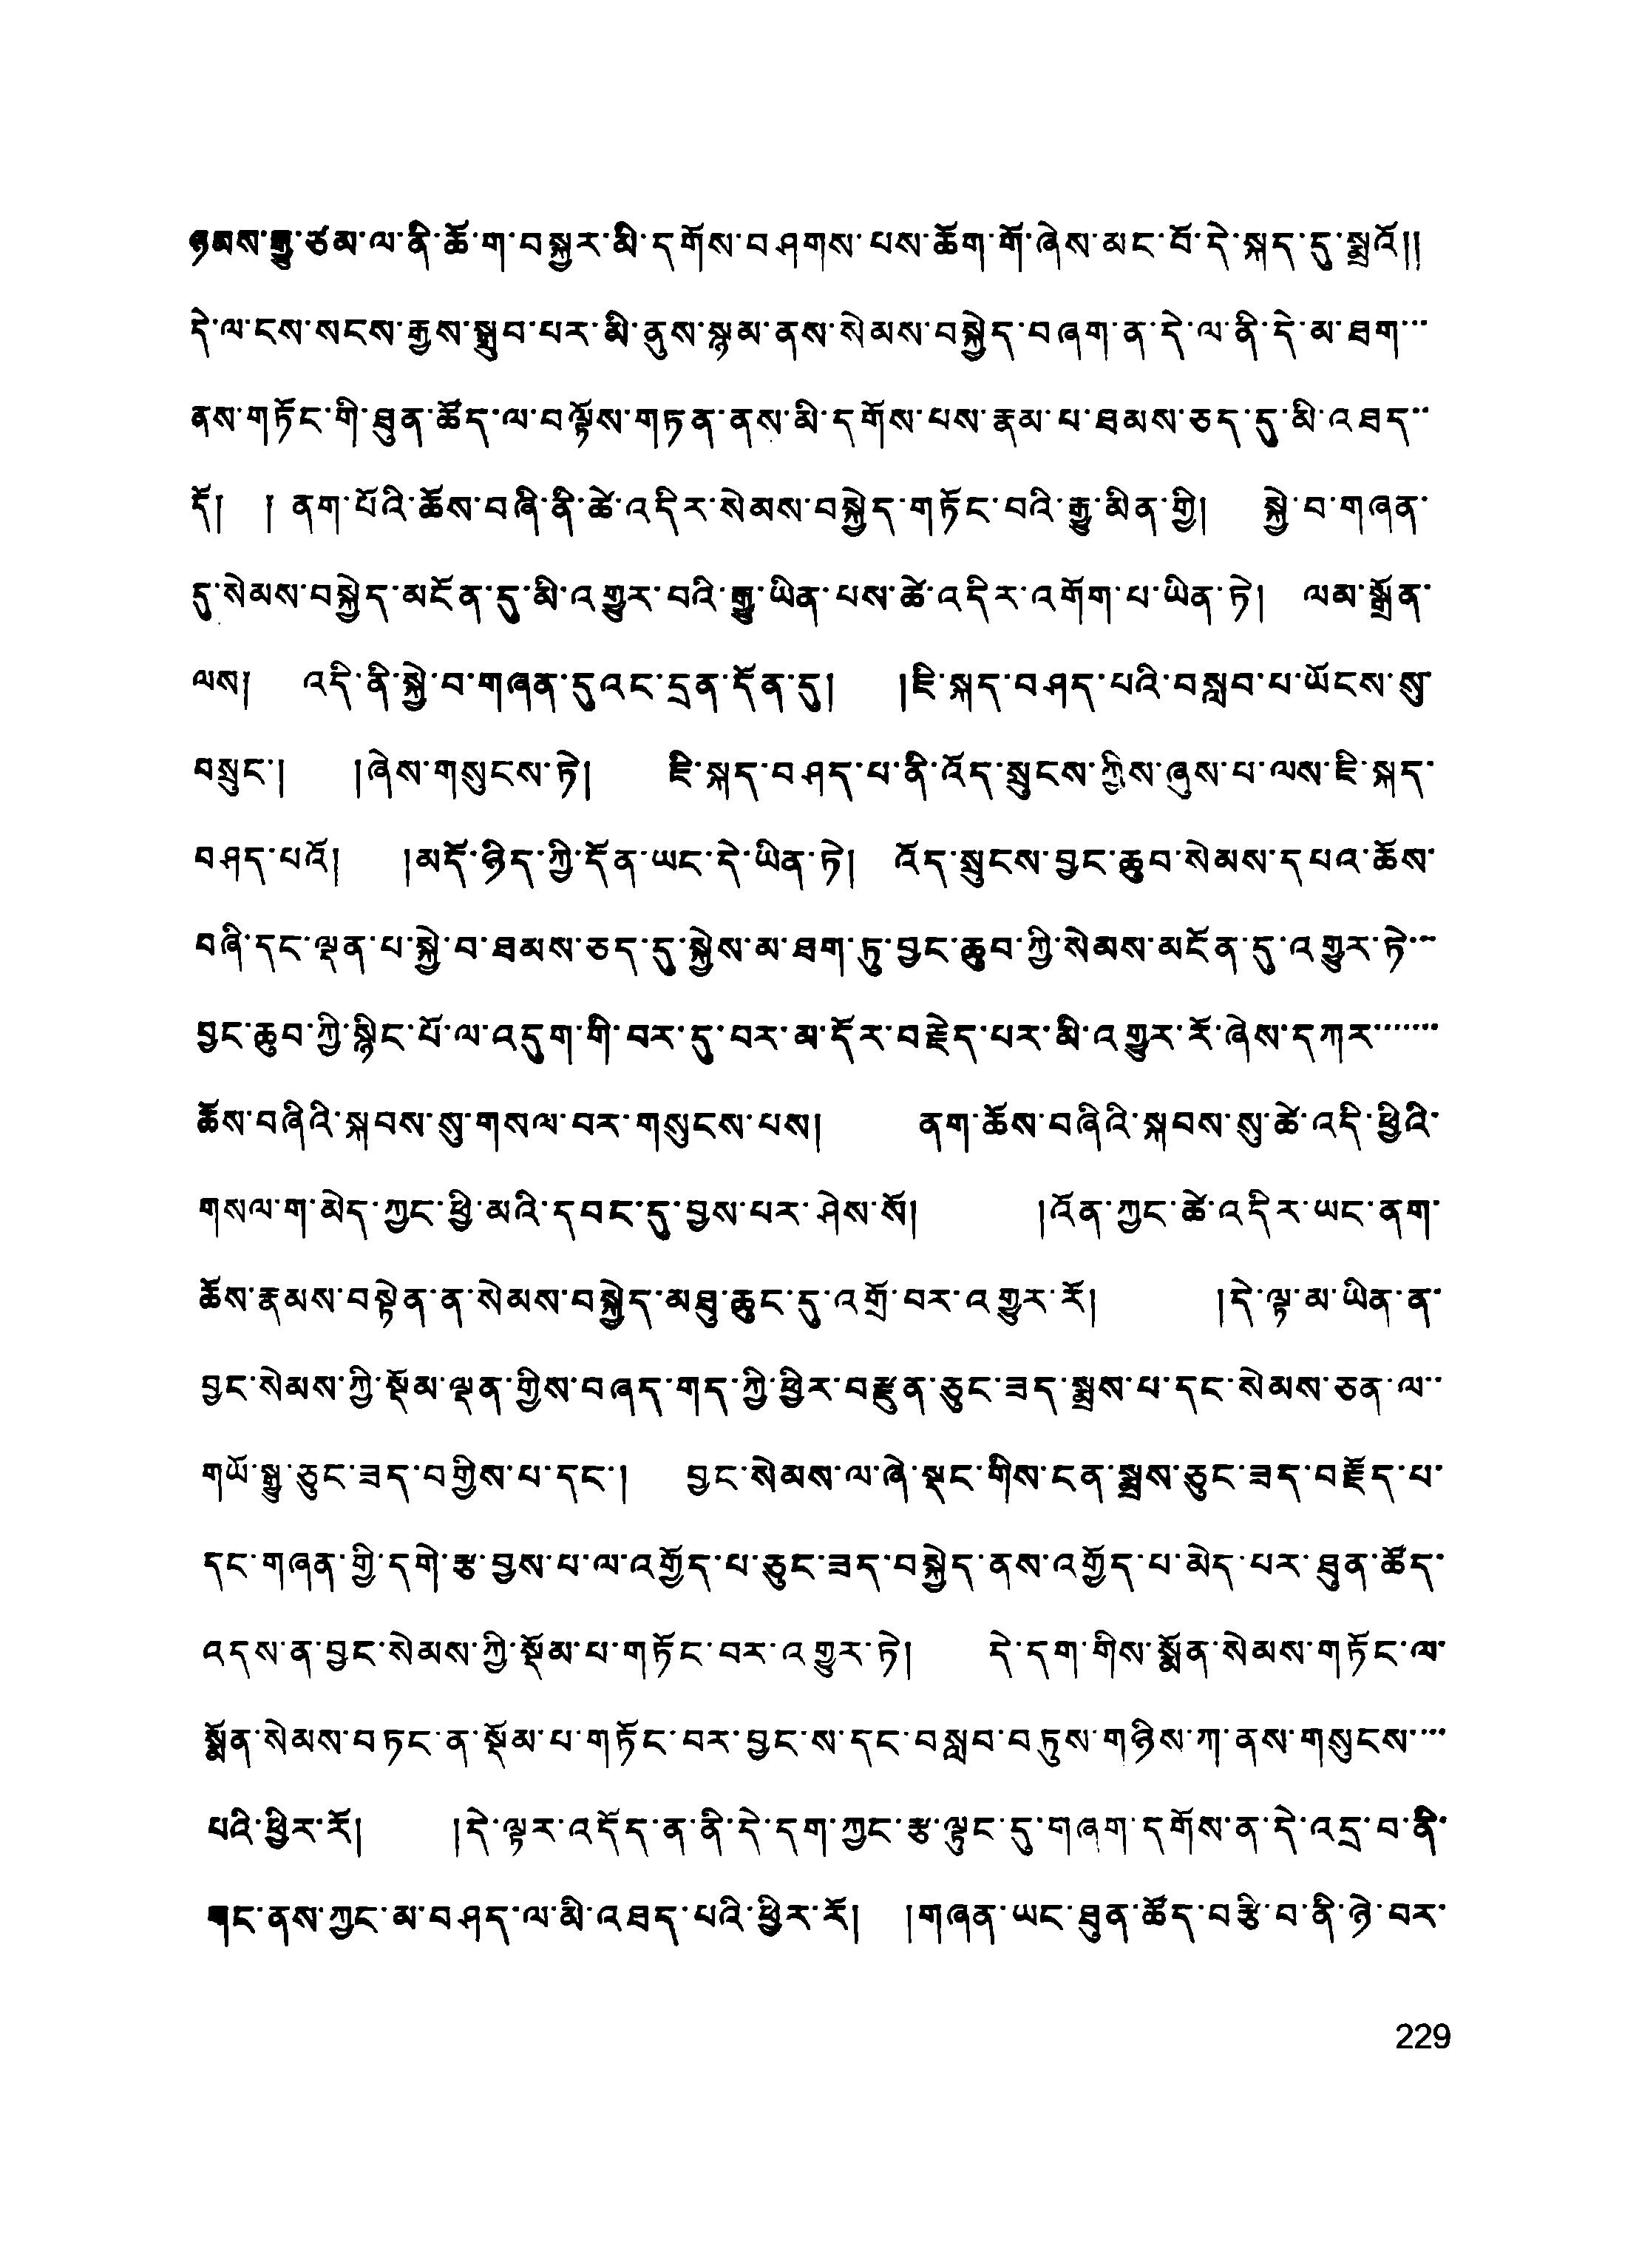 ཉམས་རྒྱུ་ཙམ་ལ་ནི་ཆོ་ག་བསྐྱར་མི་དགོས་བཤགས་པས་ཆོག་གོ་ཞེས་མང་པོ་དེ་སྐད་དུ་སྨྲའོ།།
དེ་ལ་ངས་སངས་རྒྱས་སྒྲུབ་པར་མི་ནུས་སྙམ་ནས་སེམས་བསྐྱེད་བཞག་ན་དེ་ལ་ནི་དེ་མ་ཐག་་་
ནས་གཏོང་གི་ཐུན་ཚོད་ལ་བལྟོས་གཏན་ནས་མི་དགོས་པས་རྣམ་པ་ཐམས་ཅད་དུ་མི་འཐད་་
དོ། །ནག་པོའི་ཆོས་བཞི་ནི་ཚེ་འདིར་སེམས་བསྐྱེད་གཏོང་བའི་རྒྱུ་མིན་གྱི། སྐྱེ་བ་གཞན་
དུ་སེམས་བསྐྱེད་མངོན་དུ་མི་འགྱུར་བའི་རྒྱུ་ཡིན་པས་ཚེ་འདིར་འགོག་པ་ཡིན་ཏེ། ལམ་སྒྲོན་
ལས། འདི་ནི་སྐྱེ་བ་གཞན་དུའང་དྲན་དོན་དུ། །ཇི་སྐད་བཤད་པའི་བསླབ་པ་ཡོངས་སུ་
བསྲུང་། །ཞེས་གསུངས་ཏེ། ཇི་སྐད་བཤད་པ་ནི་འོད་སྲུངས་ཀྱིས་ཞུས་པ་ལས་ཇི་སྐད་
བཤད་པའོ། །མདོ་ཉིད་ཀྱི་དོན་ཡང་དེ་ཡིན་ཏེ། འོད་སྲུངས་བྱང་ཆུབ་སེམས་དཔའ་ཆོས་
བཞི་དང་ལྡན་པ་སྐྱེ་བ་ཐམས་ཅད་དུ་སྐྱེས་མ་ཐག་ཏུ་བྱང་ཆུབ་ཀྱི་སེམས་མངོན་དུ་འགྱུར་ཏེ་་་
བྱང་ཆུབ་ཀྱི་སྙིང་པོ་ལ་འདུག་གི་བར་དུ་བར་མ་དོར་བརྗེད་པར་མི་འགྱུར་རོ་ཞེས་དཀར་་་་་་་
ཆོས་བཞིའི་སྐབས་སུ་གསལ་བར་གསུངས་པས། ནག་ཆོས་བཞིའི་སྐབས་སུ་ཚེ་འདི་ཕྱིའི་
གསལ་ག་མེད་ཀྱང་ཕྱི་མའི་དབང་དུ་བྱས་པར་ཤེས་སོ། །འོན་ཀྱང་ཚེ་འདིར་ཡང་ནག་
ཆོས་རྣམས་བསྟེན་ན་སེམས་བསྐྱེད་མཐུ་ཆུང་དུ་འགྲོ་བར་འགྱུར་རོ། །དེ་ལྟ་མ་ཡིན་ན་
བྱང་སེམས་ཀྱི་སྡོམ་ལྡན་གྱིས་བཞད་གད་ཀྱི་ཕྱིར་བརྫུན་ཅུང་ཟད་སྨྲས་པ་དང་སེམས་ཅན་ལ་་
གཡོ་སྒྱུ་ཅུང་ཟད་བགྱིས་པ་དང་། བྱང་སེམས་ལ་ཞེ་སྡང་གིས་ངན་སྨྲས་ཅུང་ཟད་བརྗོད་པ་
དང་གཞན་གྱི་དགེ་རྩ་བྱས་པ་ལ་འགྱོད་པ་ཅུང་ཟད་བསྐྱེད་ནས་འགྱོད་པ་མེད་པར་ཐུན་ཚོད་
འདས་ན་བྱང་སེམས་ཀྱི་སྡོམ་པ་གཏོང་བར་འགྱུར་ཏེ། དེ་དག་གིས་སྨོན་སེམས་གཏོང་ལ་
སྨོན་སེམས་བཏང་ན་སྡོམ་པ་གཏོང་བར་བྱང་ས་དང་བསླབ་བཏུས་གཉིས་ཀ་ནས་གསུངས་་་་
པའི་ཕྱིར་རོ། །དེ་ལྟར་འདོད་ན་ནི་དེ་དག་ཀྱང་རྩ་ལྟུང་དུ་གཞག་དགོས་ན་དེ་འདྲ་བ་ནི་
གང་ནས་ཀྱང་མ་བཤད་ལ་མི་འཐད་པའི་ཕྱིར་རོ། །གཞན་ཡང་ཐུན་ཚོད་བརྩི་བ་ནི་ཉེ་བར་
229